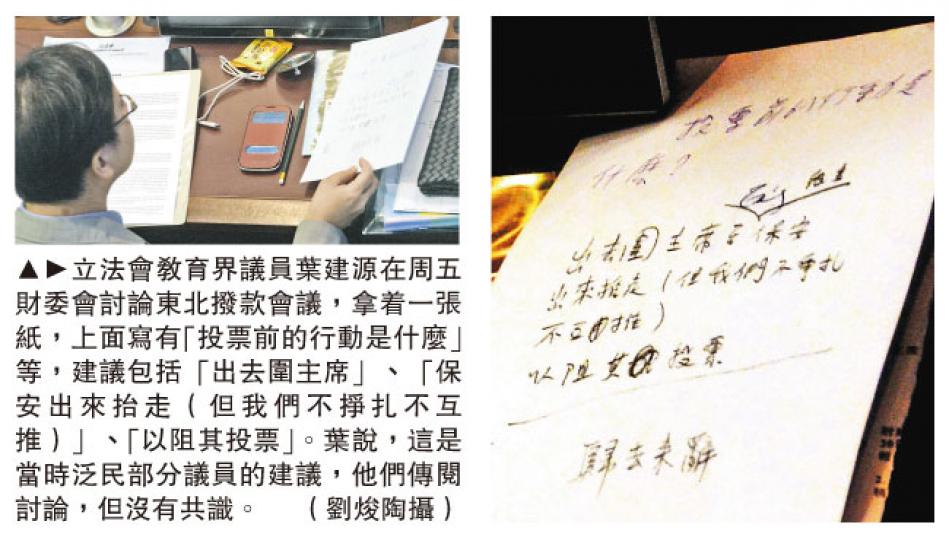 ▲▶立法會教育界議員葉建源在周五
財委會討論東北撥款會議，拿着一張
紙，上面寫有「投票前的行動是什麼」
等，建議包括「出去圍主席」、「保
安出來抬走（但我們不掙扎不互
推）」、「以阻其投票」。葉說，這是
當時泛民部分議員的建議，他們傳閱
討論，但沒有共識。　（劉焌陶攝）
投票前的行動是
什麼？
出去圍主席
保安
出來抬走（但我們不爭扎
不互推）
以阻其投票
歸去來辭